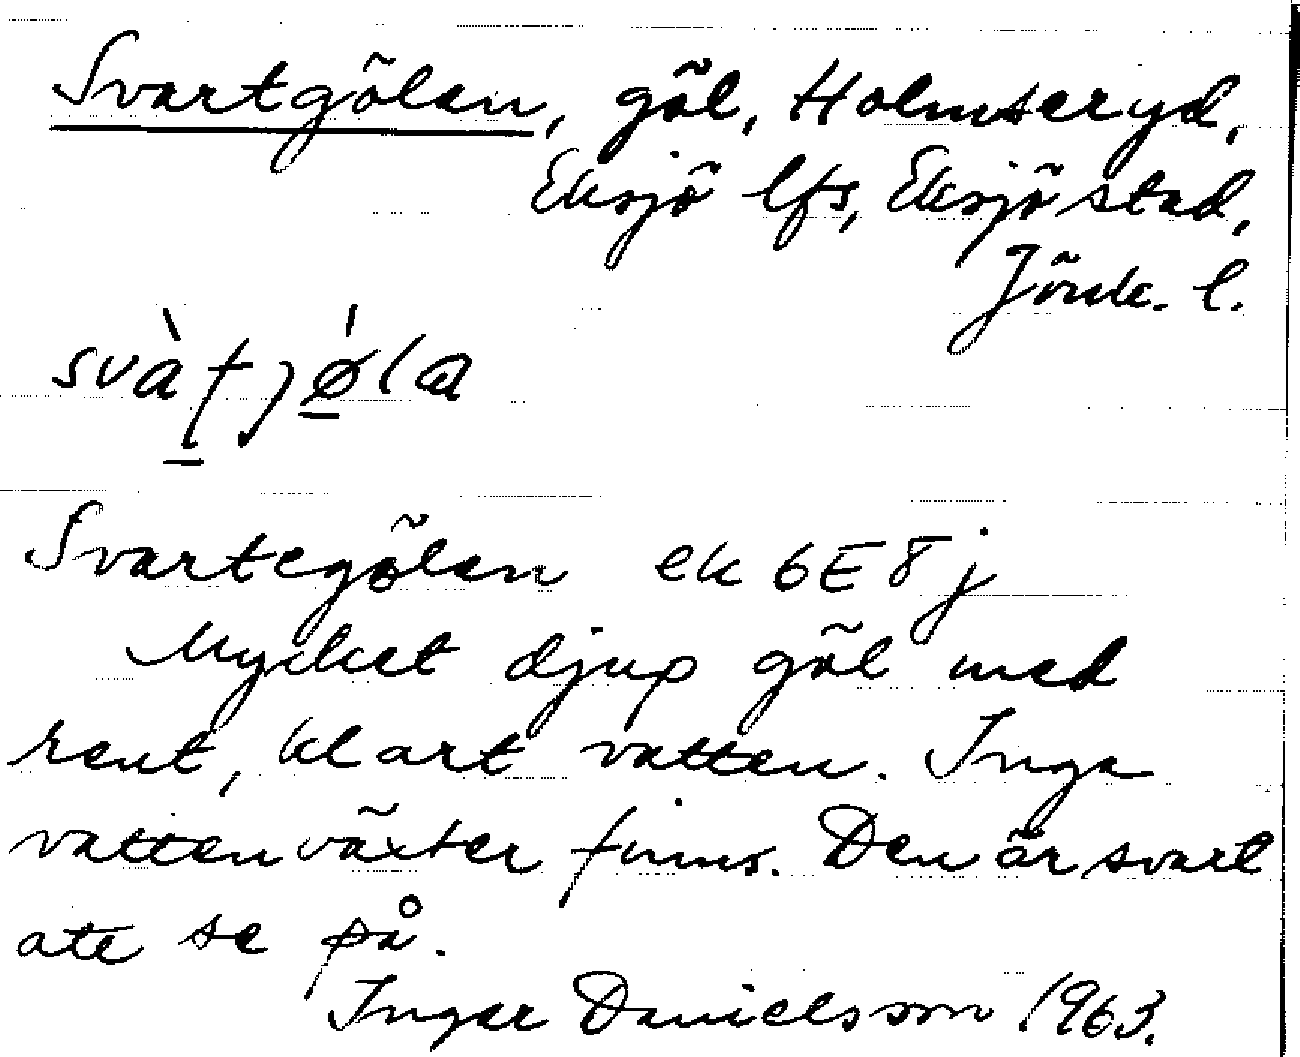 Svartgölen, göl, Holmseryd,
Eksjö lfs, Eksjö stad,
Jönk. l.
Svartegölen ek 6E8j
Mycket djup göl med
rent, klart vatten. Inga
vattenväxter finns. Den är svart
att se på.
Ingar Danielsson 1963.